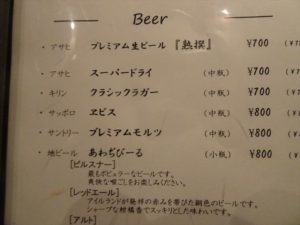 Beer
・アサヒ プレミアム生ビール『熟撰』 ¥700
・アサヒ スーパードライ (中瓶) ¥700
・キリン クラシックラガー (中瓶) ¥700
・サッポロ ヱビス (中瓶) ¥800
・サントリー プレミアムモルツ (中瓶) ¥800
・地ビール あわぢびーる (小瓶) ¥800
[ピルスナー]
最もポピュラーなビールです。
爽快な喉ごしをお楽しみください。
[レッドエール]
アイルランドが発祥の赤みを帯びた銅色のビールです。
シャープな柑橘香でスッキリとした味わいです。
[アルト]